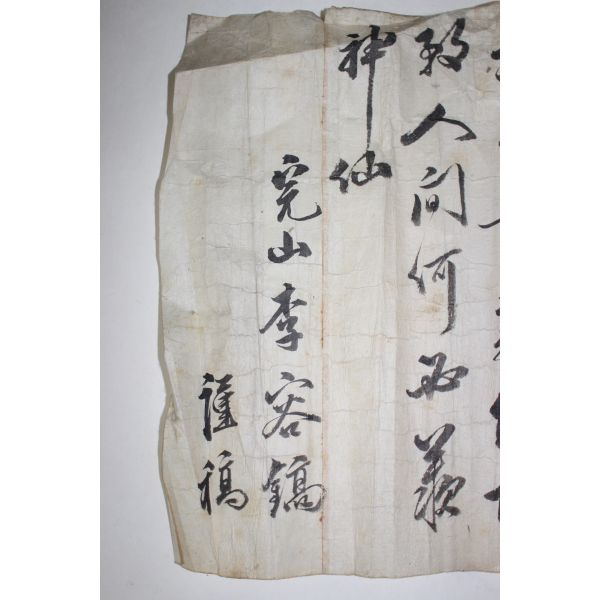 敎人间何必羡
神仙
完山李容鎬
謹稿